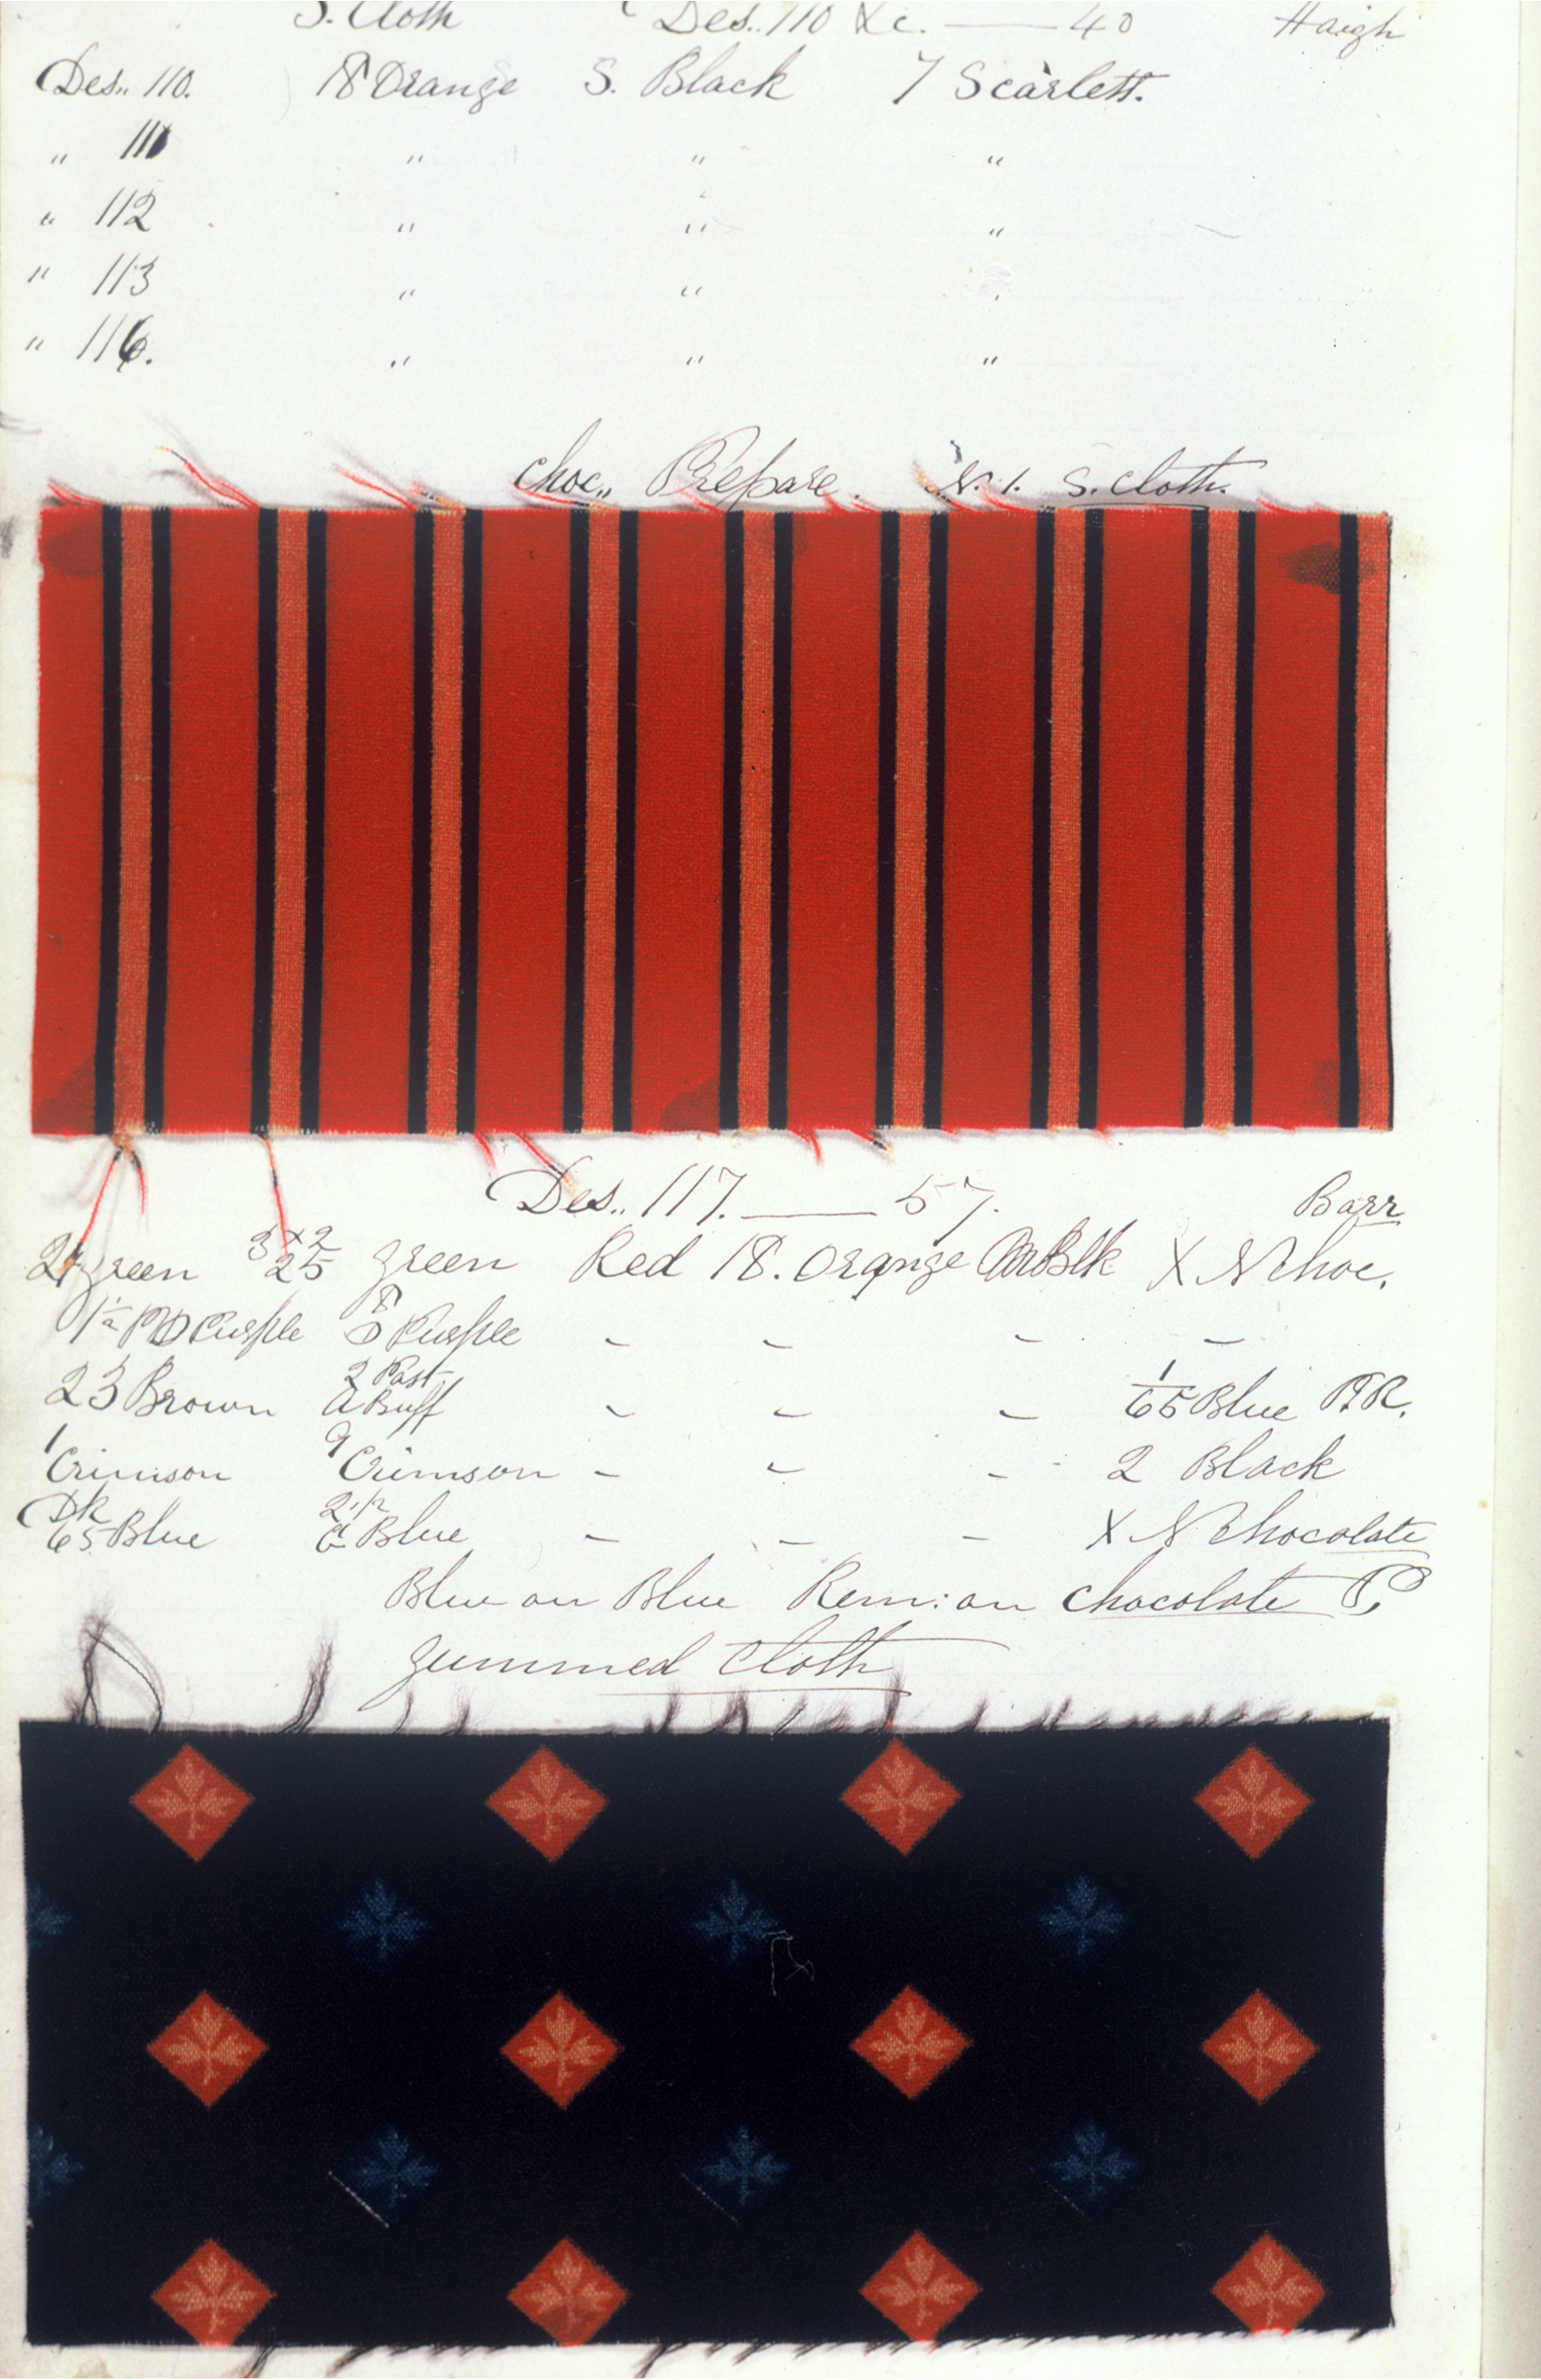 S. Cloth Des.. 110 &c. — 40 Haigh
Des.. 110. 18 Orange S. Black 7 Scarlett.
" 111 " " "
" 112 " " "
" 113 " " "
" 116. " " "
Choc.. Prepare. N. 1. S. Cloth.
Des.. 117. — 57. Barr
green 25 green Red 18. Orange Blk X N Choc.
Purple 8 Purple - - - -
23 Brown 2 Past A Buff - - - 1/65 Blue P.R.
1 Crimson 9 Crimson - - - 2 Black
Dk 65 Blue 2½ Blue - - - X N Chocolate
Blue on Blue Rem: on Chocolate P,
Gummed Cloth